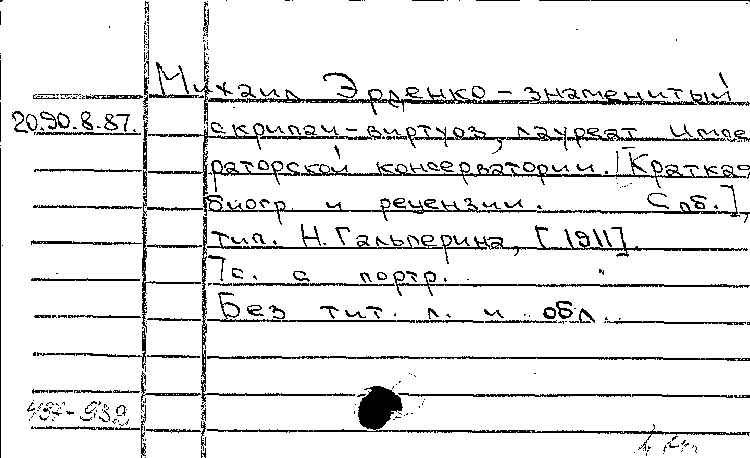 Михаил Эрденко – знаменитый
20.90.8.87.
скрипач-виртуоз, лауреат Импе
раторской консерватории. [Краткая
биогр и рецензии. Спб.],
тип. Н. Гальперина, [1911].
7с. с портр.
Без тит. л. и обл.
457-939